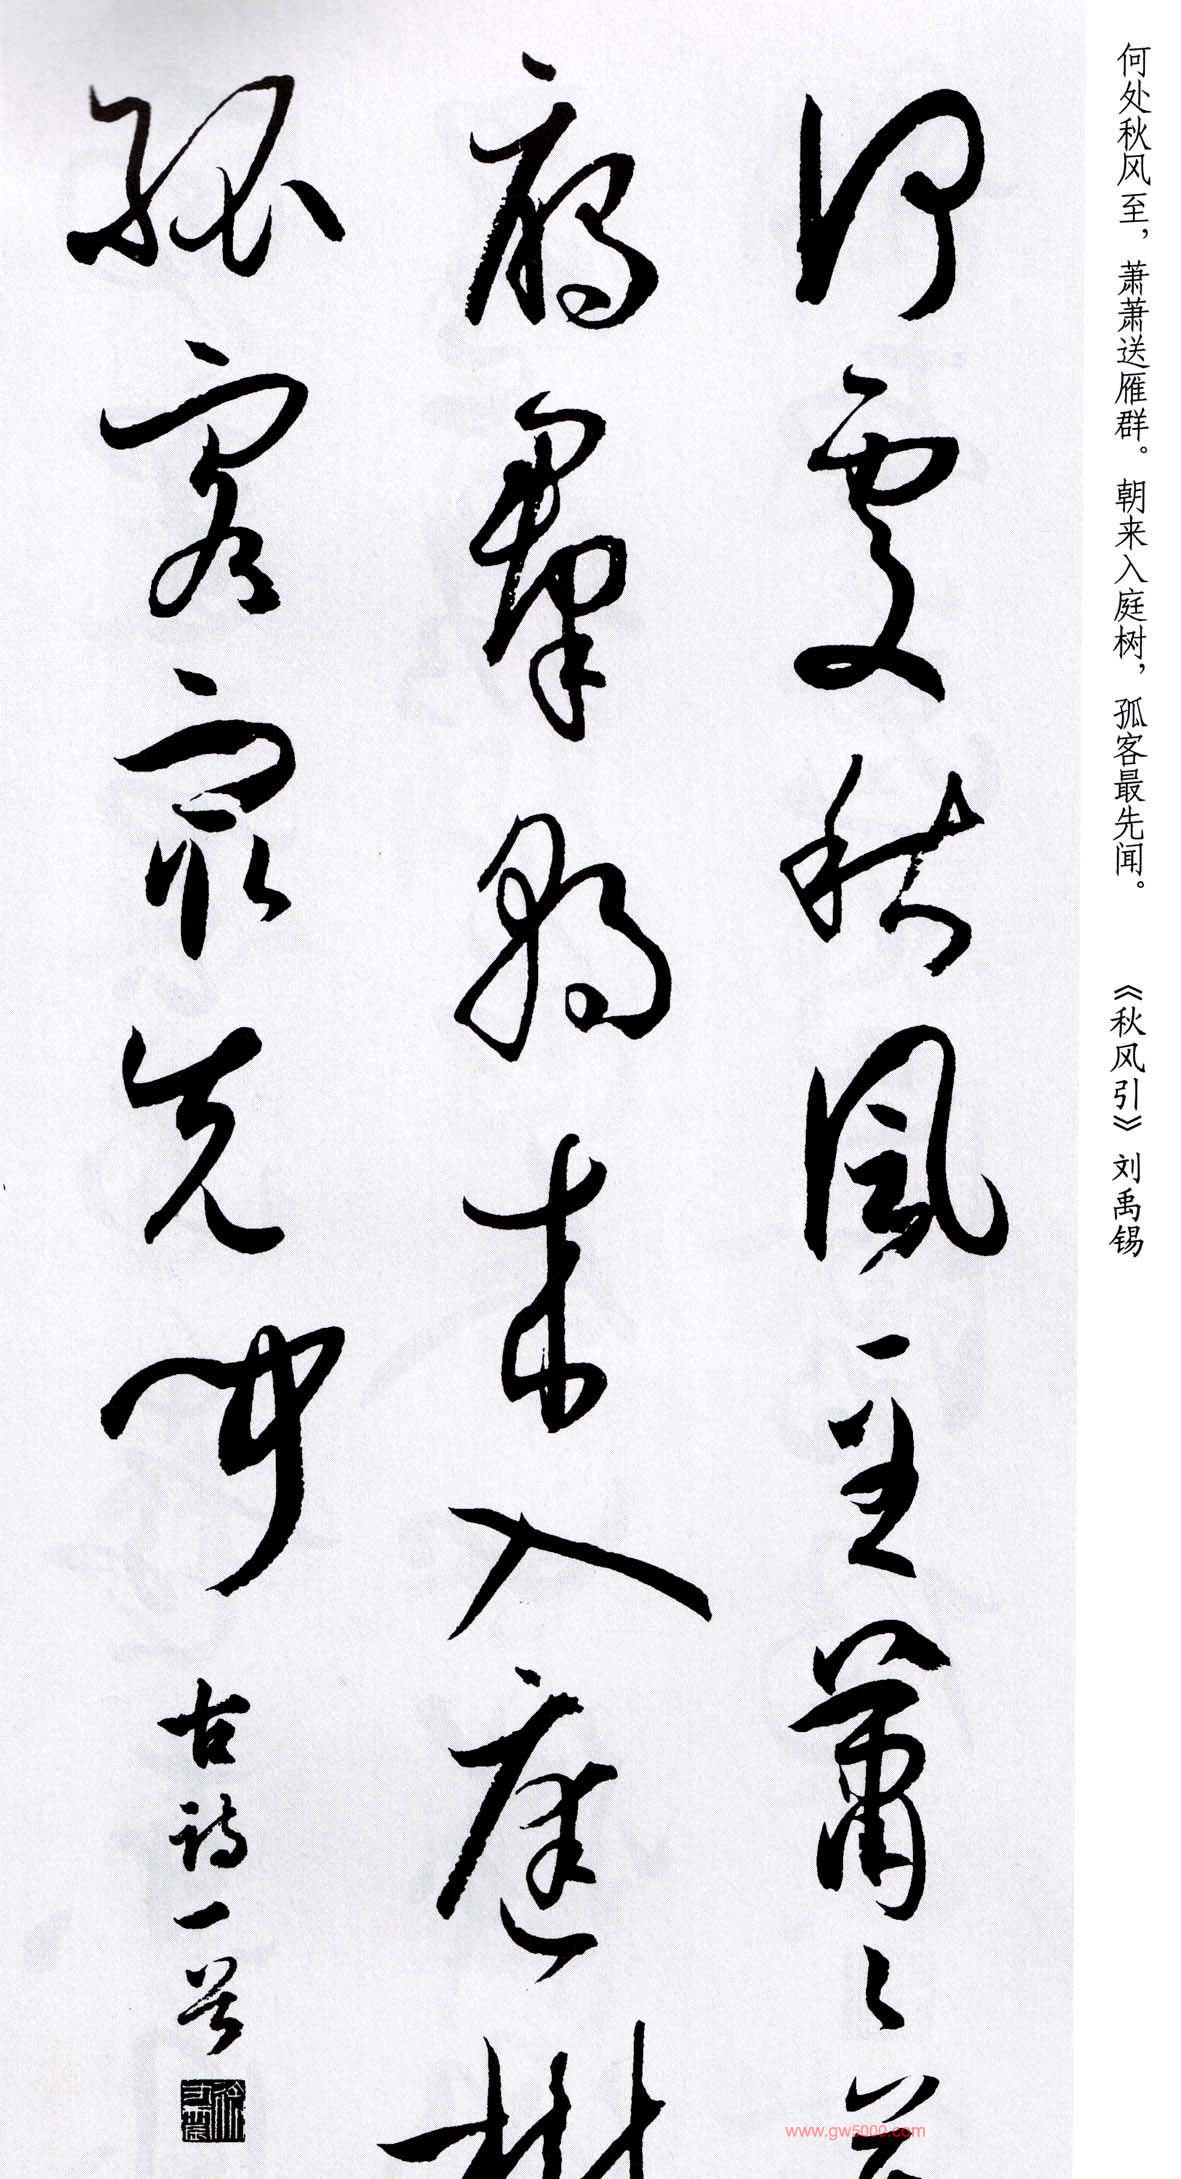 何处秋风至，萧萧送雁群。朝来入庭树，孤客最先闻。 《秋风引》 刘禹锡
何處秋風至蕭々送
雁羣朝来入庭樹
孤客最先聞 古詩一首
www.gw5000.com